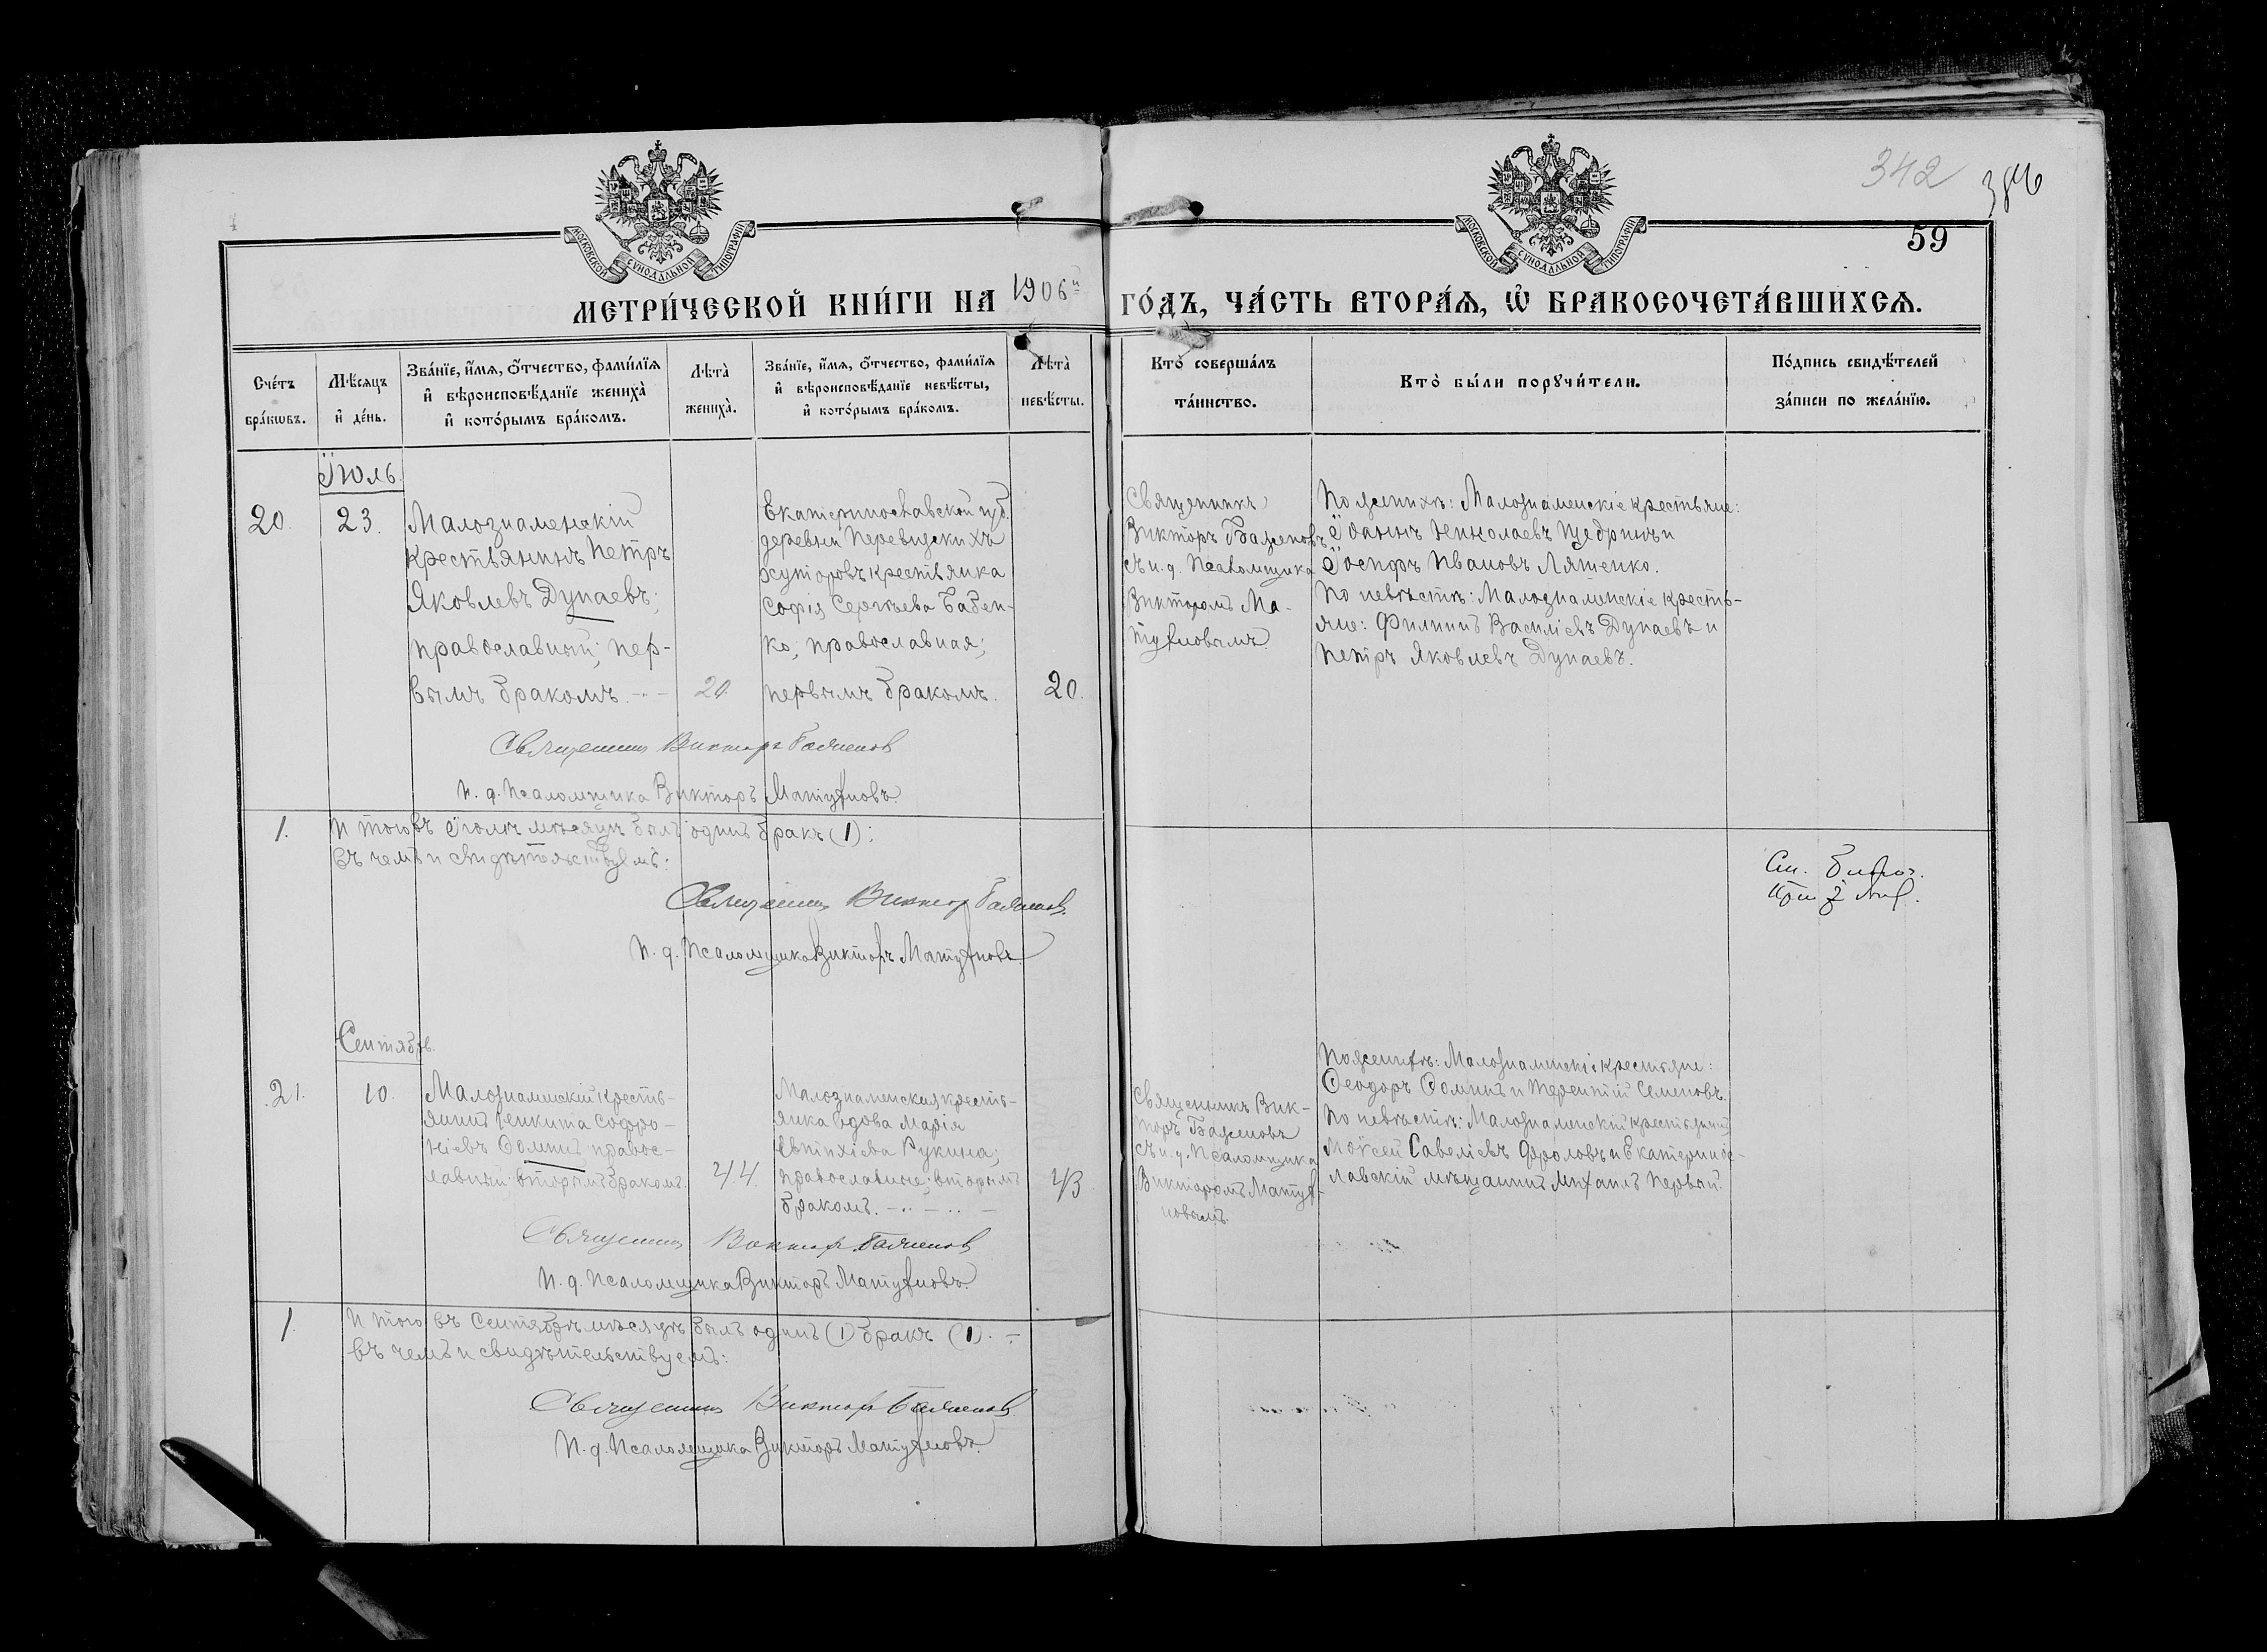 342
59
МОСКОВСКОЙ СѴНОДАЛЬНОЙ ТИПОГРАФІИ
МОСКОВСКОЙ СѴНОДАЛЬНОЙ ТИПОГРАФІИ
МЕТРИ́ЧЕСКОЙ КНИ́ГИ НА 1906й ГО́ДЪ, ЧА́СТЬ ВТОРА́Ѧ, Ѽ БРАКОСОЧЕТА́ВШИХСѦ.
Сче́тъ
бра́кѡвъ.
Мѣ́сѧцъ
и҆ де́нь.
Зва́нїе, и҆́мѧ, ѻ҆́тчество, фами́лїѧ
и҆ вѣроисповѣ́данїе жениха̀
и҆ кото́рымъ бра́комъ.
Лѣта̀
жениха̀.
Зва́нїе, и҆́мѧ, ѻ҆́тчество, фами́лїѧ
и҆ вѣроисповѣ́данїе невѣ́сты,
и҆ кото́рымъ бра́комъ.
Лѣта̀
невѣ́сты.
Кто̀ соверша́лъ
та́инство.
Кто̀ бы́ли порꙋчи́тели.
По́дпись свидѣ́телей
за́писи по жела́нїю.
Іюль.
20.
23.
Малознаменскій
крестьянинъ Петръ
Яковлевъ Дунаевъ;
православный; пер-
вымъ бракомъ.
20.
Екатеринославской губ.
деревни Перевизскихъ
хуторовъ крестьянка
Софія Сергѣева Бабен-
ко; православная;
первымъ бракомъ.
20.
Священникъ
Викторъ Баженовъ
съ и. д. Псаломщика
Викторомъ Ма-
туфновымъ.
По женихѣ: Малознаменскіе крестьяне:
Іоаннъ Николаевъ Щедринъ и
Іосифъ Ивановъ Ляшенко.
По невѣстѣ: Малознаменскіе кресть-
яне: Филиппъ Василіевъ Дунаевъ и
Петръ Яковлевъ Дунаевъ.
Священникъ Викторъ Баженов
И. д. Псаломщика Викторъ Матуфновъ.
1.
Итого въ Іюлѣ мѣсяцѣ былъ одинъ бракъ (1);
въ чемъ и свидѣтельствуемъ:
Священникъ Виктор Баженов.
И. д. Псаломщика Викторъ Матуфновъ.
Сентябрь.
21.
10.
Малознаменскій кресть-
янинъ Никита Софро-
ніевъ Ѳоминъ; правос-
лавный; вторымъ бракомъ.
44.
Малознаменская кресть-
янка вдова Марія
Евтихіева Рукина;
православная; вторымъ
бракомъ.
43.
Священникъ Вик-
торъ Баженовъ
съ и. д. Псаломщика
Викторомъ Матуф-
новымъ.
По женихѣ: Малознаменскіе крестьяне:
Ѳеодоръ Ѳоминъ и Терентій Семеновъ.
По невѣстѣ: Малознаменскій крестьянинъ
Моѵсей Савеліевъ Фроловъ и Екатеринос-
лавскій мѣщанинъ Михаилъ Первый.
Священникъ Виктор Баженов
И. д. Псаломщика Викторъ Матуфновъ.
1.
Итого въ Сентябрѣ мѣсяцѣ былъ одинъ (1) бракъ (1).
въ чемъ и свидѣтельствуемъ:
Священникъ Виктор Баженов.
И. д. Псаломщика Викторъ Матуфновъ.